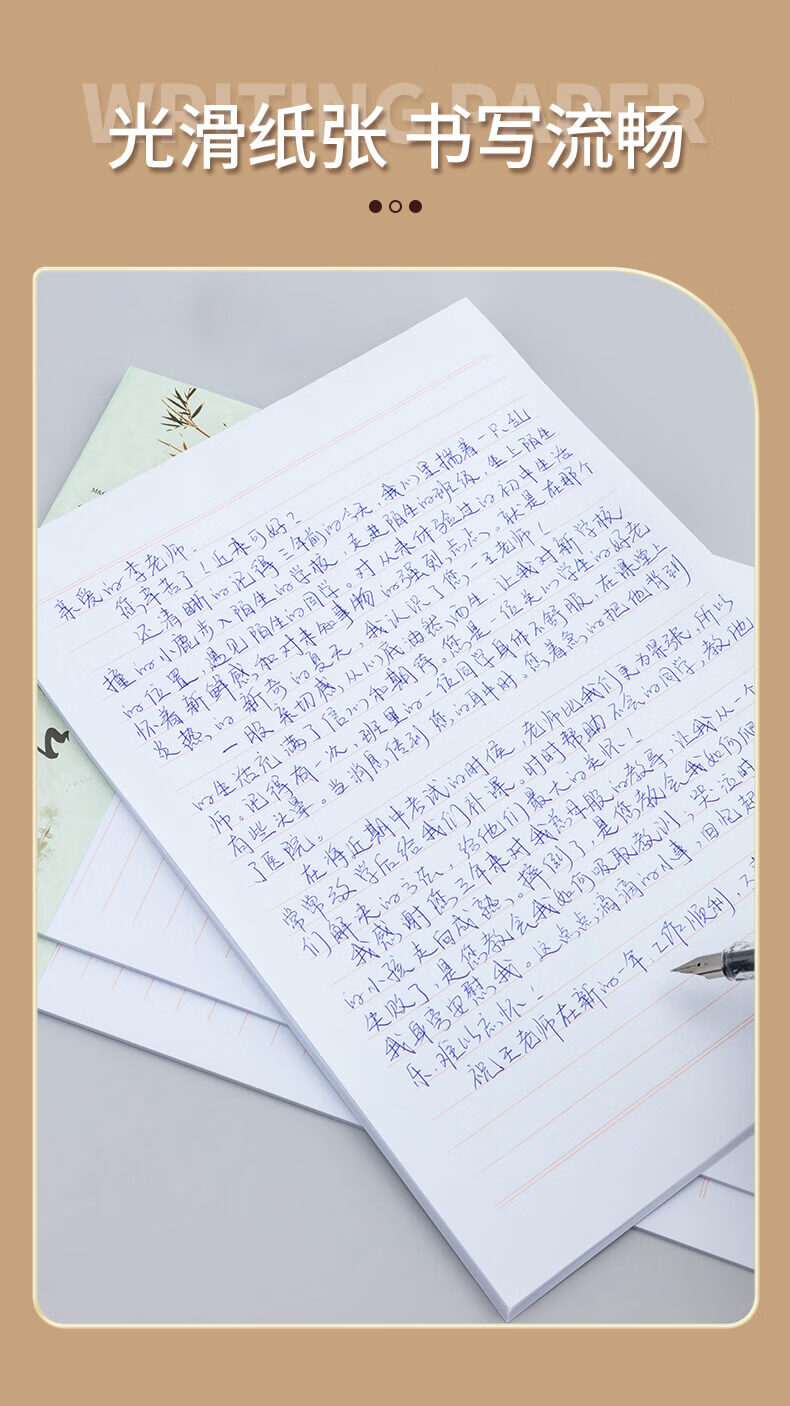 WRITING PAPER
光滑纸张 书写流畅
亲爱的李老师:
您辛苦了!近来可好?
还清晰的记得三年前的今天,我们里揣着一只乱
撞的小鹿步入陌生的学校,走进陌生的班级,坐上陌生
的位置,遇见陌生的同学。对从未体验过的初中生活
怀着新鲜感,和对未知事物的强烈点点。就是在那个
炎热的,新奇的夏天,我认识了您,王老师!
一股亲切感,从心底油然而生,让我对新学校
的生活充满了信心和期待。您是一位关心学生的好老
师。记得有一次,班里的一位同学身体不舒服,在课堂上
有些头晕。当消息传到您的耳中时。您着急的把他背到
了医院。
在将近期中考试的时候,老师比我们更为紧张,所以
常常放学后给我们补课。时时帮助不会的同学,教他
们解决的方法,给他们最大的关怀!
我感谢您三年来对我的教导,让我从一个
的小孩走向成熟。摔倒了,是您教会我如何爬
失败了,是您教会我如何吸取教训,哭泣时
我身旁安慰我。这点点滴滴的小事,回忆起
乐,难以忘怀!
祝王老师在新的一年:工作顺利,